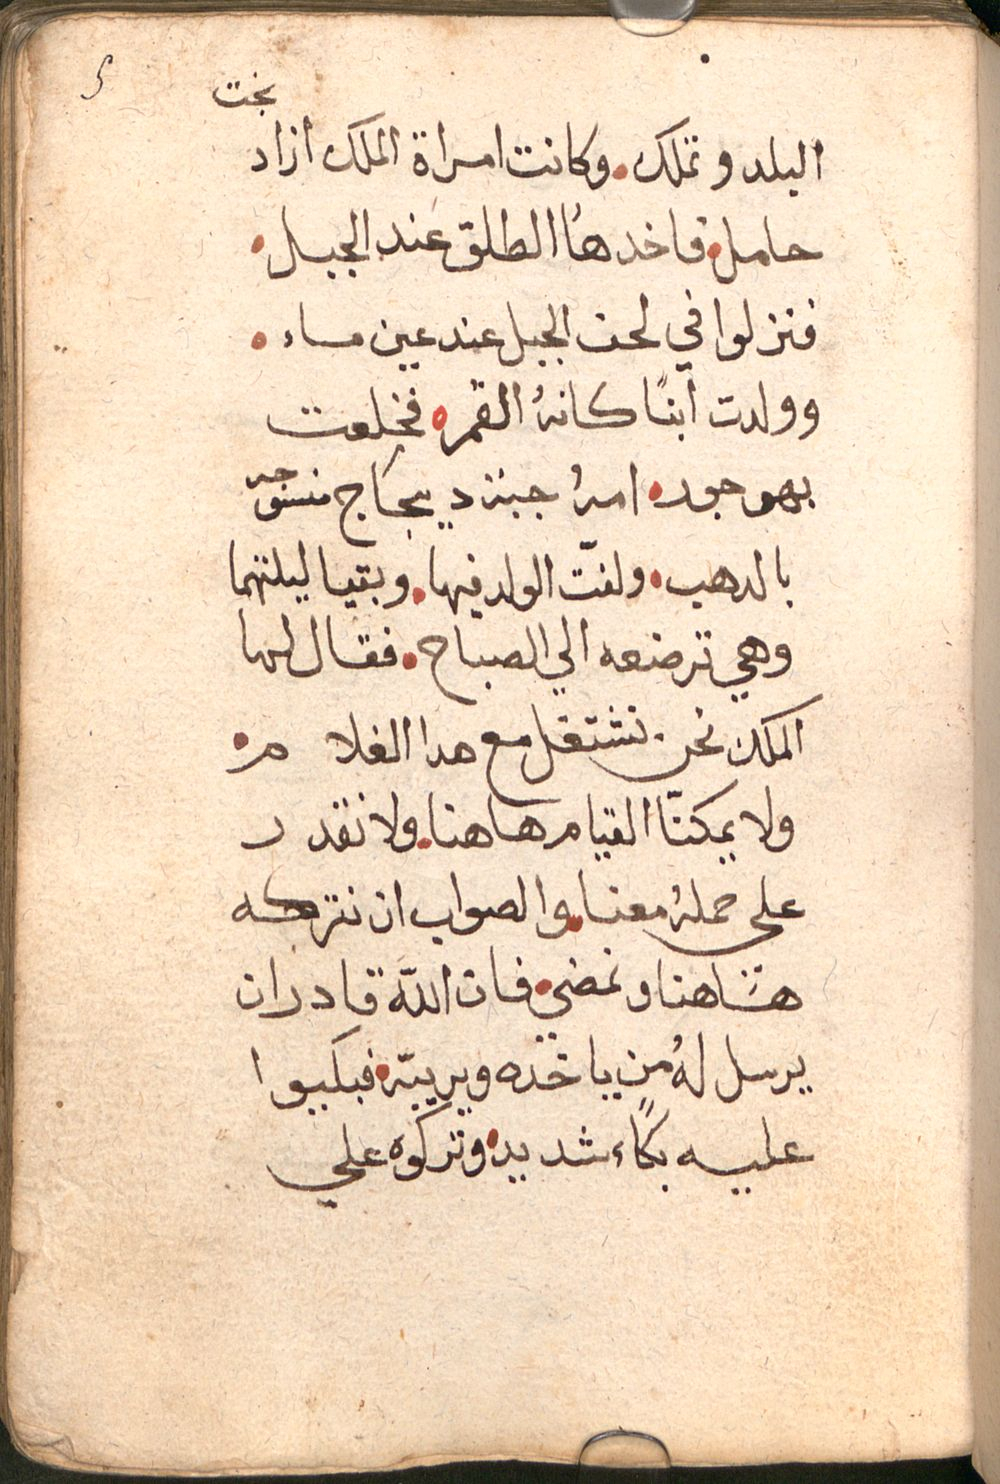 بخت
البلد وتملك. وكانت امراة الملك ازاد
حامل. فاخدها الطلق عند الجبل.
فنزلوا في لحف الجبل عند عين ماء.
وولدت ابنًا كانهُ القمر. فخلعت
جبند ديباج منسوجه
بالدهب. ولفتّ الولد فيها. وبقيا ليلتهما
وهي ترضعه الي الصباح. فقال لها
الملك نحن نشتغل مع هدا الغلام.
ولا يمكننّا القيام هاهنا. ولا نقدر
على حملهُ معنا. والصواب ان نتركه
هاهنا ونمضي. فان اللّه قادر ان
يرسل لهُ من ياخده ويربيّه. فبكيوا
عليه بكاءً شديد. وتركوه علي